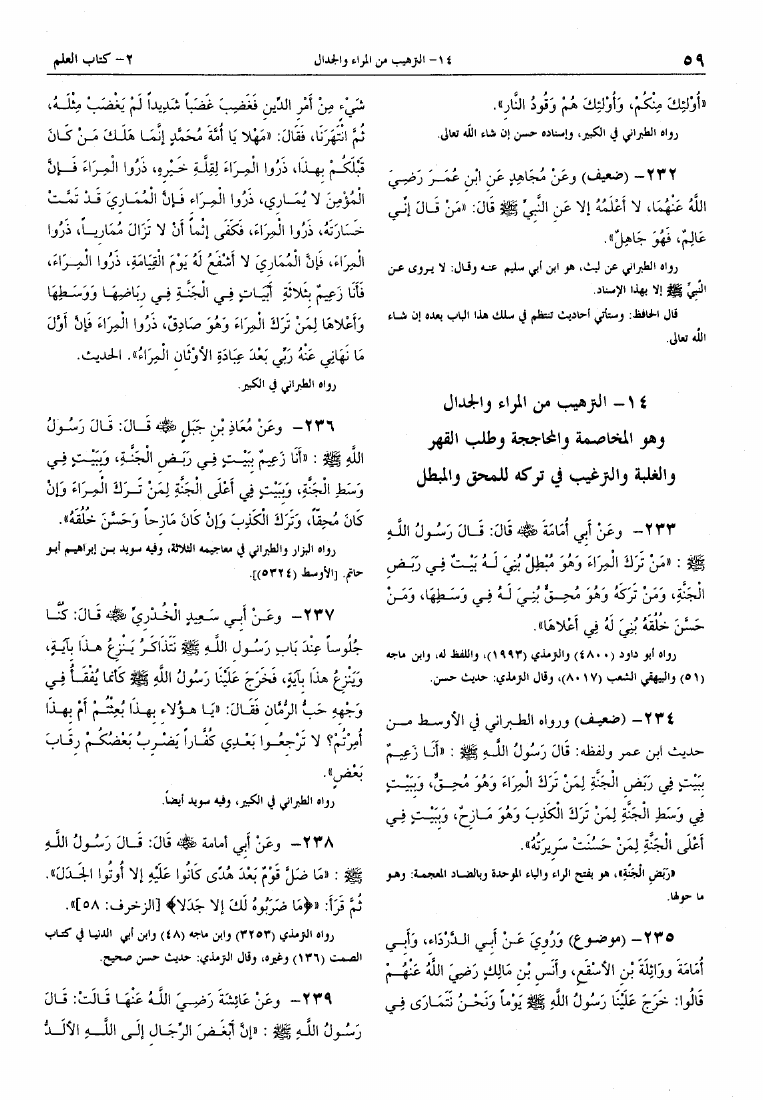 ٢- كتاب العلم
١٤- الترهيب من المراء والجدال
٥٩
«أُوْلَئِكَ مِنْكُمْ، وَأُوْلَئِكَ هُمْ وَقُودُ النَّارِ».
رواه الطبراني في الكبير، وإسناده حسن إن شاء الله تعالى.
٢٣٢- (ضعيف) وعَنْ مُجَاهِدٍ عَنِ ابْنِ عُمَـرَ رَضِيَ
اللَّهُ عَنْهُمَا، لا أَعْلَمُهُ إلا عَنِ النَّبِيِّ ﷺ قَالَ: «مَنْ قَـالَ إنِّـي
عَالِمٌ، فَهُوَ جَاهِلٌ».
رواه الطبراني عن ليث، هو ابن أبي سليم عنـه وقـال: لا يـروى عـن
النَّبِيِّ ﷺ إلا بهذا الإسناد.
قال الحافظ: وستأتي أحاديث تنتظم في سلك هذا الباب بعده إن شـاء
اللَّه تعالى.
١٤- الترهيب من المراء والجدال
وهو المخاصمة والمحاججة وطلب القهر
والغلبة والترغيب في تركه للمحق والمبطل
٢٣٣- وعَنْ أَبي أُمَامَةَ ﷺ قَالَ: قَـالَ رَسُولُ اللَّـهِ
ﷺ : «مَنْ تَرَكَ الْمِرَاءَ وَهُوَ مُبْطِلٌ بُنِيَ لَـهُ بَيْتٌ فِـي رَبَـضِ
الْجَنَّةِ، وَمَنْ تَرَكَهُ وَهُوَ مُحِـقٌّ بُنِيَ لَـهُ فِـي وَسَـطِهَا، وَمَـنْ
حَسَّنَ خُلُقَهُ بُنِيَ لَهُ فِي أَعْلاهَا».
رواه أبو داود (٤٨٠٠) والترمذي (١٩٩٣)، واللفظ له، وابن ماجه
(٥١) والبيهقي الشعب (٨٠١٧)، وقال الترمذي: حديث حسن.
٢٣٤- (ضعيف) ورواه الطـبراني في الأوسط مــن
حديث ابن عمر ولفظه: قَالَ رَسُولُ اللَّـهِ ﷺ : «أَنَـا زَعِيـمٌ
بِبَيْتٍ فِي رَبَضِ الْجَنَّةِ لِمَنْ تَرَكَ الْمِرَاءَ وَهُوَ مُحِـقٌّ، وَبِبَيْـتٍ
فِي وَسَطِ الْجَنَّةِ لِمَنْ تَرَكَ الْكَذِبَ وَهُوَ مَـازِحٌ، وَبِبَيْـتٍ فِـي
أَعْلَى الْجَنَّةِ لِمَنْ حَسُنَتْ سَرِيرَتُهُ».
«رَبَضِ الْجَنَّةِ»، هو بفتح الراء والباء الموحدة وبالضـاد المعجمـة: وهـو
ما حولها.
٢٣٥- (موضوع) وَرُوِيَ عَـنْ أَبـي الـدَّرْدَاءِ، وَأَبـي
أُمَامَةَ وَوَاثِلَةَ بْنِ الأَسْقَعِ، وأَنَسِ بْنِ مَالِكٍ رَضِيَ اللَّهُ عَنْهُـمْ
قَالُوا: خَرَجَ عَلَيْنَا رَسُولُ اللَّهِ ﷺ يَوْماً وَنَحْـنُ نَتَمَـارَى فِـي
شَيْءٍ مِنْ أَمْرِ الدِّينِ فَغَضِبَ غَضَباً شَدِيداً لَمْ يَغْضَبْ مِثْلَـهُ،
ثُمَّ انْتَهَرَنَا، فَقَالَ: «مَهْلا يَا أُمَّةَ مُحَمَّدٍ إنَّمَـا هَلَـكَ مَـنْ كَـانَ
قَبْلَكُـمْ بِهـذَا، ذَرُوا الْمِرَاءَ لِقِلَّةِ خَـيْرِهِ، ذَرُوا الْمِرَاءَ فَــإنَّ
الْمُؤْمِنَ لا يُمَـارِي، ذَرُوا الْمِرَاء فَـإنَّ الْمُمَـارِيَ قَـدْ تَمَّـتْ
خَسَارَتُهُ، ذَرُوا الْمِرَاءَ، فَكَفَى إثْمـاً أَنْ لا تَزَالَ مُمَارِيـاً، ذَرُوا
الْمِرَاءَ، فَإنَّ الْمُمَارِيَ لا أَشْفَعُ لَهُ يَوْمَ الْقِيَامَةِ، ذَرُوا الْمِـرَاءَ،
فَأَنَا زَعِيمٌ بِثَلاثَةِ أَبْيَاتٍ فِـي الْجَنَّةِ فِـي رِبَاضِهَـا وَوَسَـطِهَا
وَأَعْلاهَا لِمَنْ تَرَكَ الْمِرَاءَ وَهُوَ صَادِقٌ، ذَرُوا الْمِرَاءَ فَإنَّ أَوَّلَ
مَا نَهَانِي عَنْهُ رَبِّي بَعْدَ عِبَادَةِ الأَوْثَانِ الْمِرَاءُ». الحديث.
رواه الطبراني في الكبير.
٢٣٦- وعَنْ مُعَاذِ بْنِ جَبَلٍ ﷺ قَـالَ: قَـالَ رَسُـولُ
اللَّهِ ﷺ : «أَنَا زَعِيمٌ بِبَيْـتٍ فِـي رَبَـضِ الْجَنَّةِ، وَبِبَيْـتٍ فِي
وَسَطِ الْجَنَّةِ، وَبِبَيْتٍ فِي أَعْلَى الْجَنَّةِ لِمَنْ تَـرَكَ الْمِـرَاءَ وَإنْ
كَانَ مُحِقّاً، وَتَرَكَ الْكَذِبَ وَإنْ كَانَ مَازِحاً وَحَسَّنَ خُلُقَهُ».
رواه البزار والطبراني في معاجيمه الثلاثة، وفيه سويد بـن إبراهيم أبـو
حاتم. [الأوسط (٥٣٢٤)].
٢٣٧- وعَـنْ أَبـي سَـعِيدٍ الْخُـدْرِيِّ ﷺ قَـالَ: كُنَّـا
جُلُوساً عِنْدَ بَابِ رَسُـولِ اللَّهِ ﷺ نَتَذَاكَـرُ يَـنْزِعُ هـذَا بآيَـةٍ،
وَيَنْزِعُ هذَا بآيَةٍ، فَخَرَجَ عَلَيْنَا رَسُولُ اللَّهِ ﷺ كَأنما يُفْقَـأُ فِـي
وَجْهِهِ حَبُّ الرُّمَّانِ فَقَـالَ: «يَـا هـؤُلاءِ بِهـذَا بُعِثْتُـمْ أَمْ بِهـذَا
أُمِرْتُمْ؟ لا تَرْجِعُـوا بَعْـدِي كُفَّـاراً يَضْـرِبُ بَعْضُكُـمْ رِقَـابَ
بَعْضٍ».
رواه الطبراني في الكبير، وفيه سويد أيضاً.
٢٣٨- وعَنْ أَبي أمامة ﷺ قَالَ: قَـالَ رَسُـولُ اللَّـهِ
ﷺ : «مَا ضَلَّ قَوْمٌ بَعْدَ هُدًى كَانُوا عَلَيْهِ إلا أُوتُوا الْجَدَلَ».
ثُمَّ قَرَأَ: «﴿مَا ضَرَبُوهُ لَكَ إلا جَدَلا﴾ [الزخرف: ٥٨]».
رواه الترمذي (٣٢٥٣) وابن ماجه (٤٨) وابن أبي الدنيا في كتـاب
الصمت (١٣٦) وغيره، وقال الترمذي: حديث حسن صحيح.
٢٣٩- وعَنْ عَائِشَةَ رَضِـيَ اللَّـهُ عَنْهَا قَـالَتْ: قَـالَ
رَسُـولُ اللَّـهِ ﷺ : «إنَّ أَبْغَـضَ الرِّجَـالِ إلَـى اللَّـهِ الأَلَـدُّ